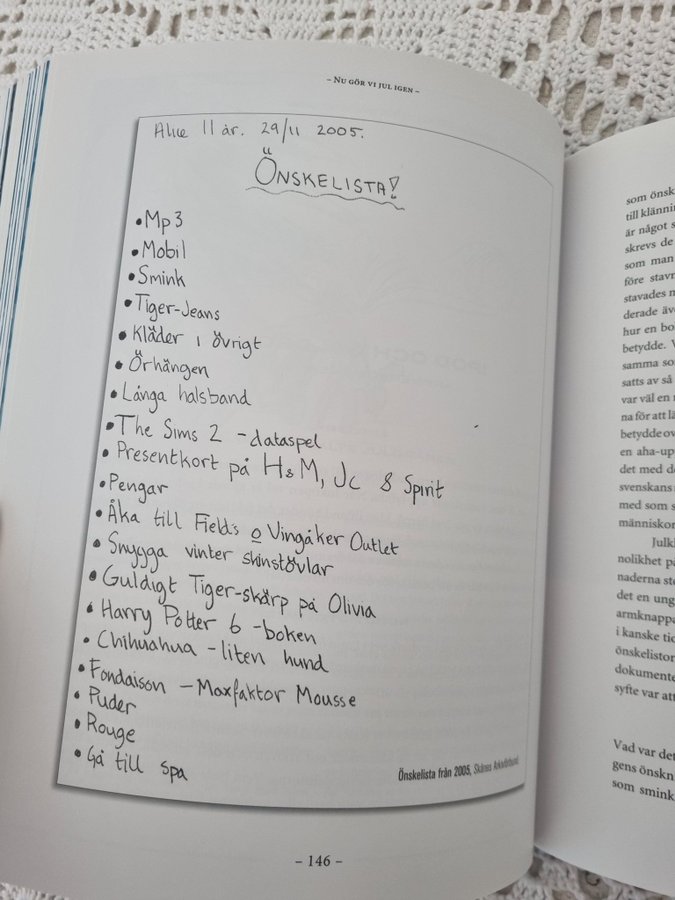 – NU GÖR VI JUL IGEN –
Alice 11 år. 29/11 2005.
ÖNSKELISTA!
• Mp3
• Mobil
• Smink
• Tiger-Jeans
• Kläder i övrigt
• Örhängen
• Långa halsband
• The Sims 2 - dataspel
• Presentkort på H&M, Jc & Spirit
• Pengar
• Åka till Fields o Vingåker Outlet
• Snygga vinter skinstövlar
• Guldigt Tiger-skärp på Olivia
• Harry Potter 6 - boken
• Chihuahua - liten hund
• Fondaison - Maxfaktor Mousse
• Puder
• Rouge
• Gå till spa
Önskelista från 2005, Skånes Arkivförbund.
– 146 –
som önsk
till klänni
är något s
skrevs de
som man
före stavn
stavades n
derade äv
hur en bo
betydde. V
samma som
satts av så
var väl en
na för att lä
betydde ov
en aha-up
det med d
svenskans
med som s
människor
Julkl
nolikhet på
naderna ste
det en ung
armknappa
i kanske tid
önskelistor
dokumente
syfte var att
Vad var det
gens önskn
som smink,